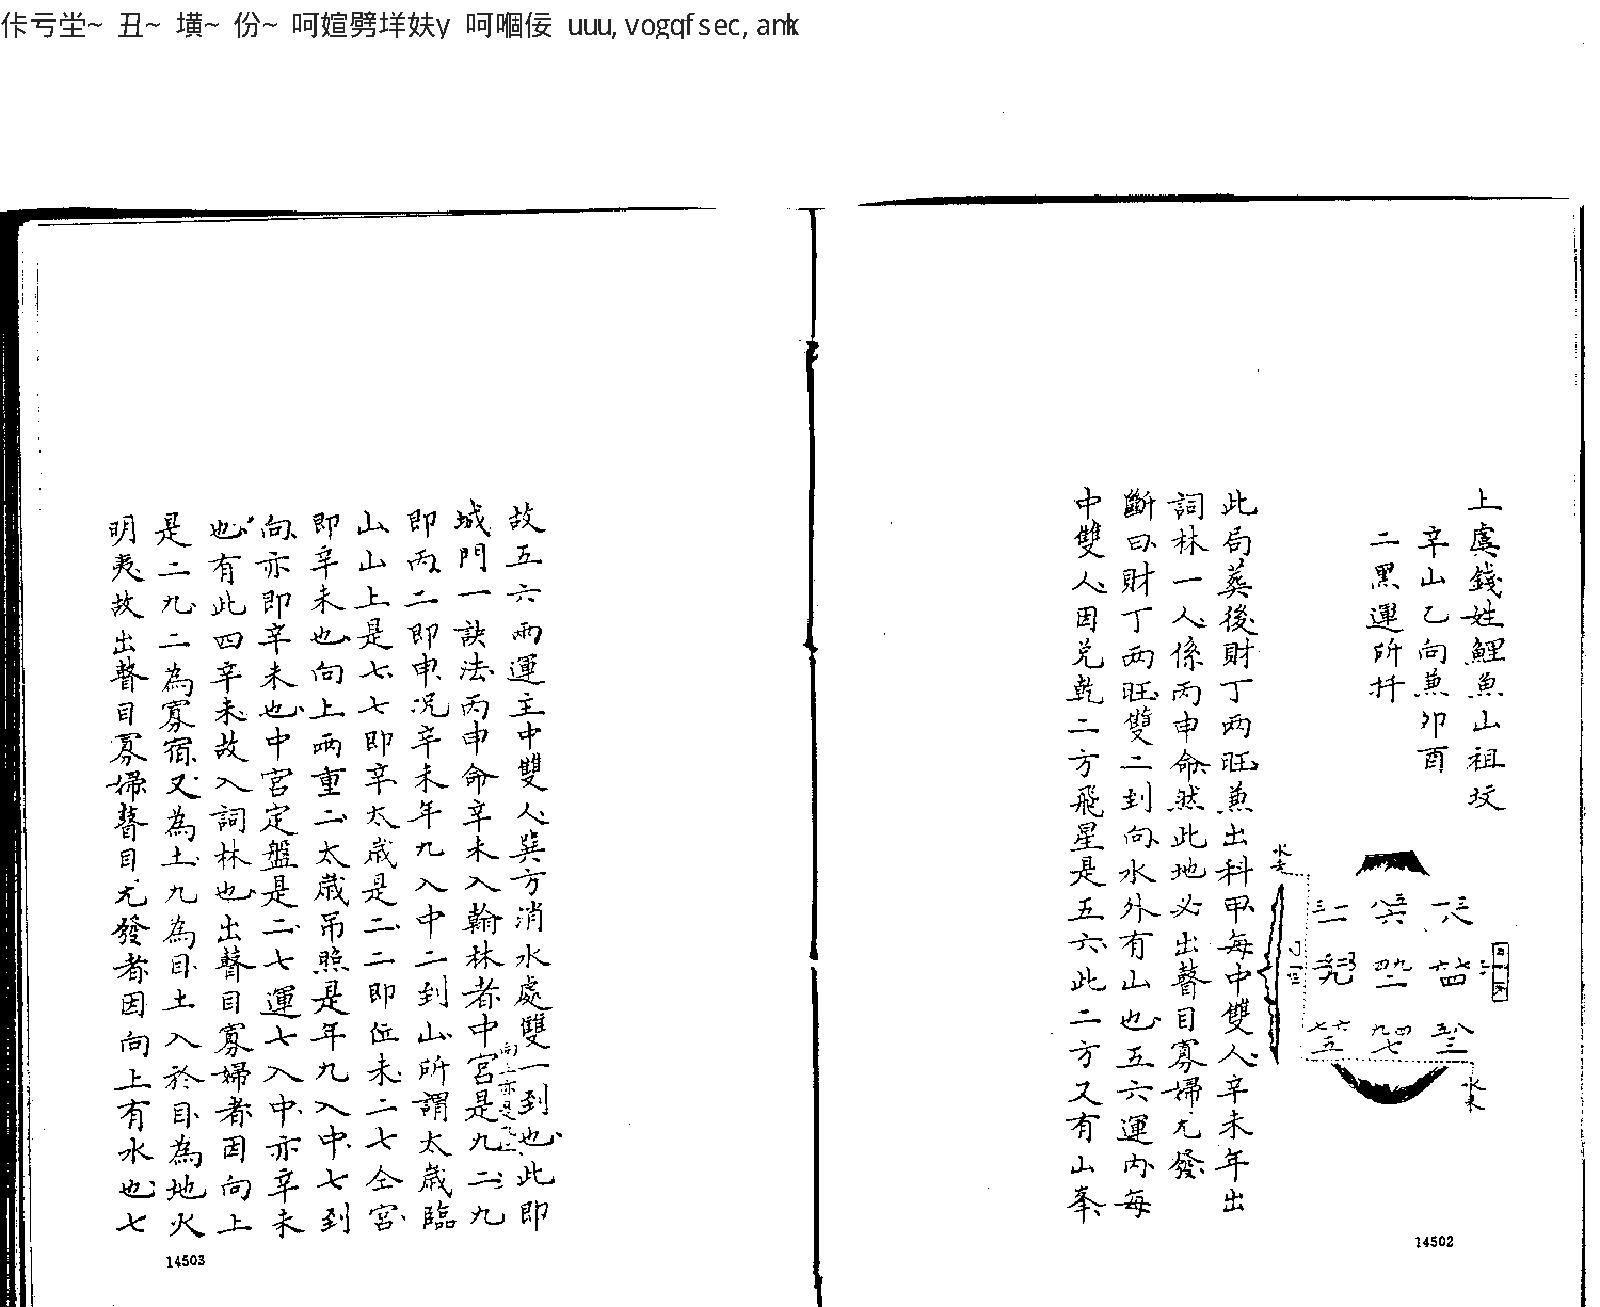 佧亏坣~ 丑~ 墴~ 份~ 呵媗劈垟妋y 呵嘓佞 uuu, vogqf sec, amk
上虞錢姓鯉魚山祖坟
辛山乙向兼卯酉
二黑運所扦
水去
水来
此局葬後財丁两旺兼出科甲每中雙人辛未年出
詞林一人係丙申命然此地必出瞽目寡婦尤發
斷曰財丁两旺雙二到向水外有山也五六運内每
中雙人因兑乾二方飛星是五六此二方又有山峯
14502
故五六兩運主中雙人巽方消水處雙一到也此即
城門一訣法丙申命辛未入翰林者中宮是九二九
向上亦是
即丙二即申况辛未年九入中二到山所謂太歲臨
山山上是七七即辛太歲是二二即坤未二七仝宮
即辛未也向上兩重二太歲吊照是年九入中七到
向亦即辛未也中宮定盤是二七運七入中亦辛未
也有此四辛未故入詞林也出瞽目寡婦者因向上
是二九二為寡宿又為土九為目土入於目為地火
明夷故出瞽目寡婦瞽目尤發者因向上有水也七
14503